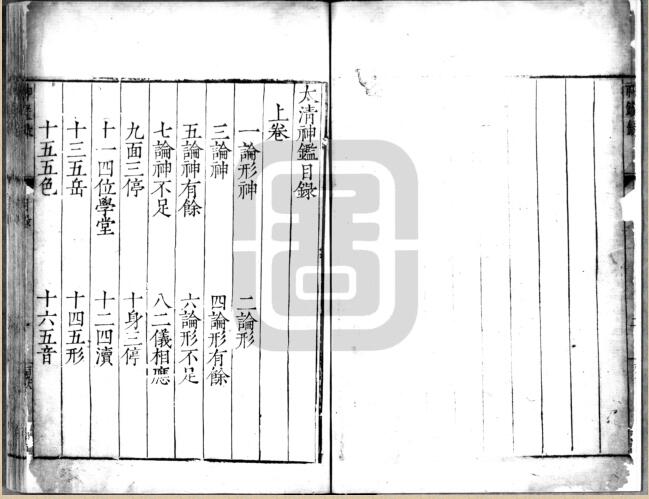 太清神鑑目録
上卷
一論形神 二論形
三論神 四論形有餘
五論神有餘 六論形不足
七論神不足 八二儀相應
九面三停 十身三停
十一四位學堂 十二四瀆
十三五岳 十四五形
十五五色 十六五音